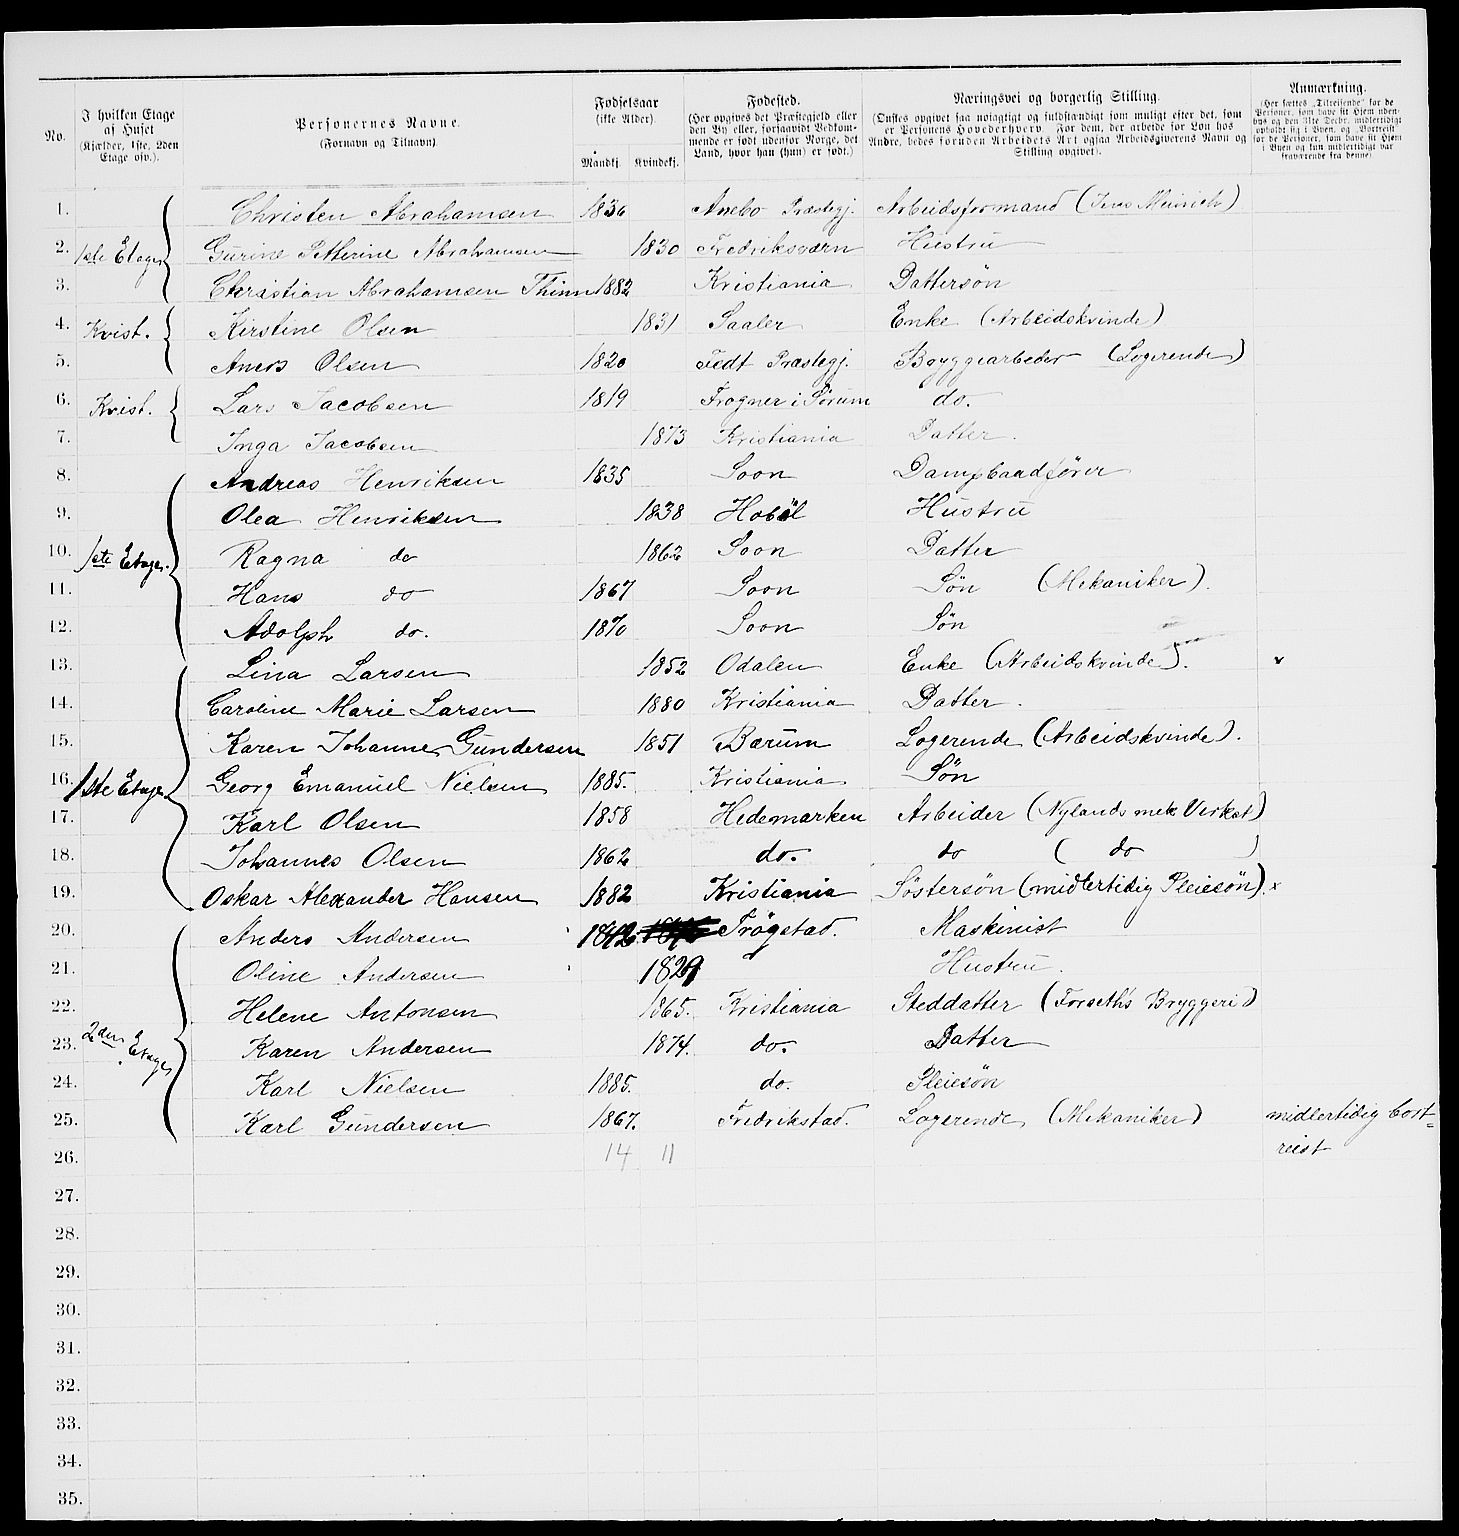 No.
I hvilken Etage af Huset (Kjælder, 1ste, 2den Etage osv.).
Personernes Navne.
(Fornavn og Tilnavn)
Fødselsaar
(ikke Alder).
Mandkj. Kvindekj.
Fødested.
(Her opgives det Præstegjeld eller
den By eller, forsaavidt Vedkom-
mende er født udenfor Norge, det
Land, hvor han (hun) er født.)
Næringsvei og borgerlig Stilling.
(Ønskes opgivet saa nøiagtigt og fuldstændigt som muligt efter det, som
er Personens Hovederhverv. For dem, der arbeide for Løn hos
Andre, bedes foruden Arbeidets Art ogsaa Arbeidsgiverens Navn og
Stilling opgivet).
Anmærkning.
(Her sættes „Tilreisende" for de
Personer, som have sit Hjem uden-
bys og den 31te Decbr. midlertidigt
opholdt sig i Byen, og „Bortreist"
for de Personer, som have sit Hjem
i Byen og kun midlertidigt var
fraværende fra denne)
1. Christen Abrahamsen 1836 Anebo Præstegj. Arbeidsformand (Jens Meinich)
2. 1ste Etage Gurine Petterine Abrahamsen 1830 Fredriksværn Hustru
3. Christian Abrahamsen Thinn 1882 Kristiania Dattersøn
4. Kvist. Kirstine Olsen 1831 Saaler Enke (Arbeidskvinde)
5. Aners Olsen 1820 Fedt Præstegj. Bryggearbeder (Logerende)
6. Kvist. Lars Jacobsen 1819 Frogner i Sørum do.
7. Inga Jacobsen 1873 Kristiania Datter.
8. Andreas Henriksen 1835 Soon Dampbaadfører
9. Olea Henriksen 1838 Hobøl Hustru
10. 1ste Etage. Ragna do 1862 Soon Datter
11. Hans do 1867 Soon Søn (Mekaniker).
12. Adolph do. 1870 Soon Søn
13. Lina Larsen 1852 Odalen Enke (Arbeidskvinde).
14. Caroline Marie Larsen 1880 Kristiania Datter.
15. Karen Johanne Gundersen 1851 Bærum Logerende (Arbeidskvinde).
16. 1ste Etage Georg Emanuel Nielsen 1885. Kristiania Søn
17. Karl Olsen 1858 Hedemarken Arbeider (Nylands mek Verkst)
18. Johannes Olsen 1862 do. do ( do )
19. Oskar Alexander Hansen 1882 Kristiania Søstersøn (midlertidig Pleiesøn). x
20. Anders Andersen 1842 Trøgstad. Maskinist
21. Oline Andersen 1829 Hustru.
22. Helene Antonsen 1865. Kristiania Steddatter (Forseths Bryggeri)
23. 2den Etage Karen Andersen 1874. do. Datter
24. Karl Nielsen 1885. do. Pleiesøn
25. Karl Gundersen 1867. Fredrikstad. Logerende (Mekaniker) midlertidig bort=
reist
26. 14 11
27.
28.
29.
30.
31.
32.
33.
34.
35.